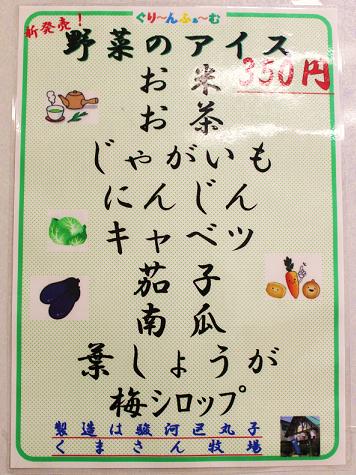 ぐり～んふぁ～む
新発売！
野菜のアイス
お米 350円
お茶
じゃがいも
にんじん
キャベツ
茄子
南瓜
葉しょうが
梅シロップ
製造は駿河区丸子
くまさん牧場